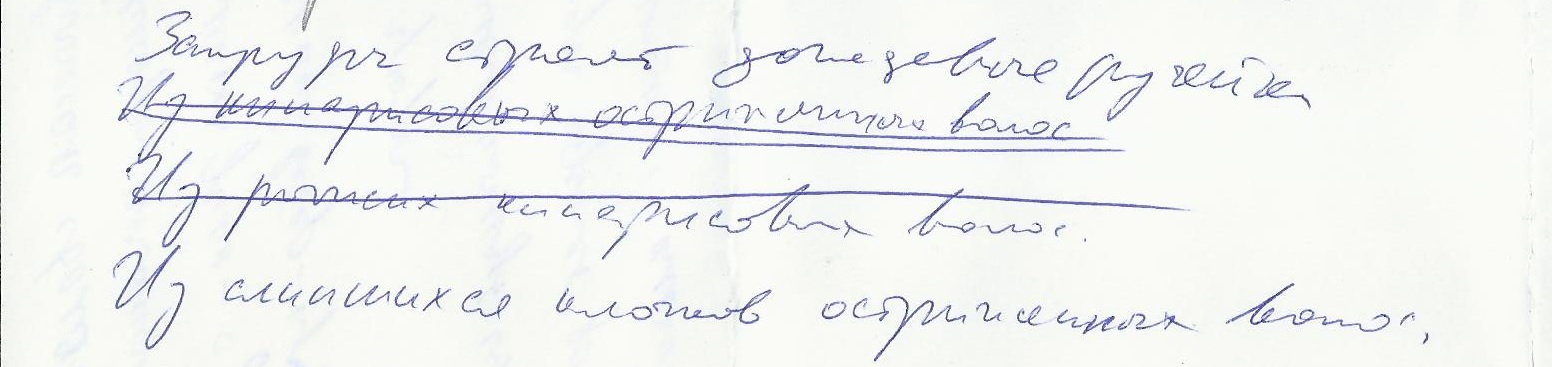 Запруды строят дождевые ручейки
Из кипарисовых остриженных волос
Из рыжих кипарисовых волос.
Из слипшихся клочков остриженных волос,